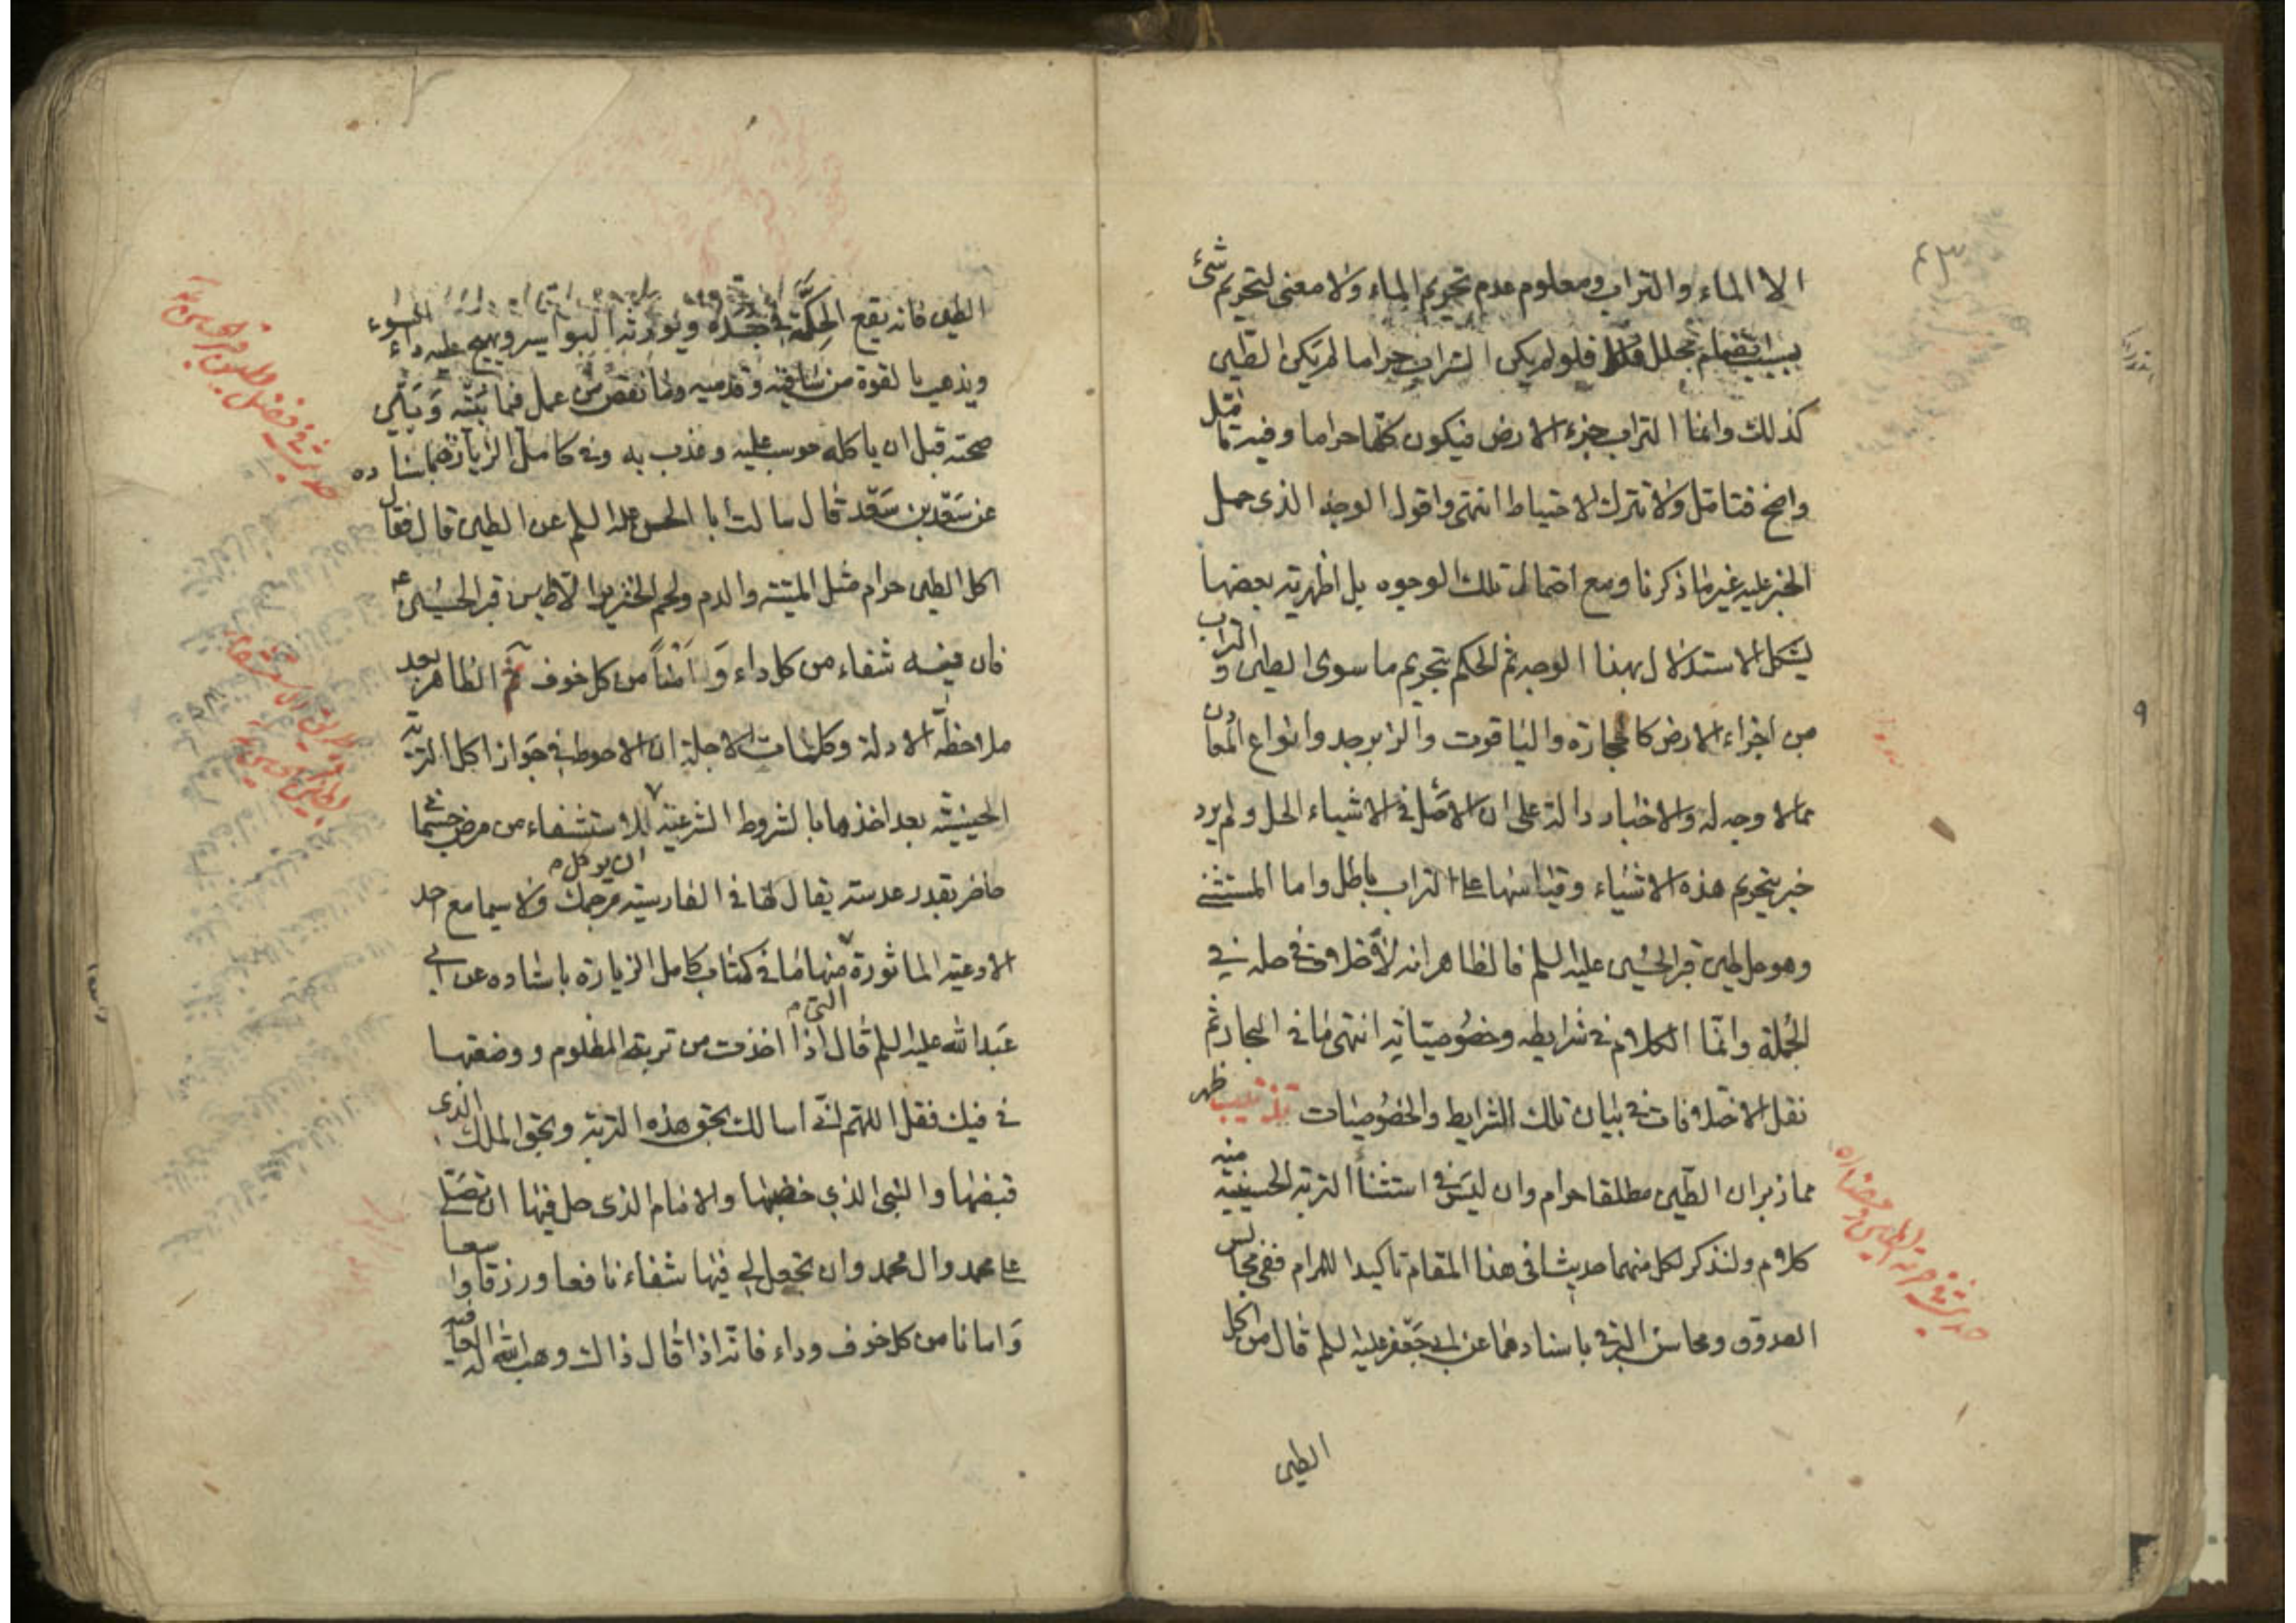 ٤٣
الا الماء والتراب ومعلوم عدم تحريم الماء ولا معنى لتحريم شئ
بسبب انضمام محلل فلو لم يكن التراب حراما لم يكن الطين
كذلك وانما التراب جزء الارض فيكون كلها حراما وفيه تأمل
واضح فتامل ولا تترك الاحتياط انتهى واقول الوجه الذى حمل
الخبر عليه غير ما ذكرنا ومع احتمال تلك الوجوه بل اظهرية بعضها
يشكل الاستدلال بهذا الوجه ثم الحكم بتحريم ما سوى الطين و التراب
من اجزاء الارض كالحجارة والياقوت والزبرجد وانواع المعادن
مما لا وجه له والاخبار دالة على ان الاصل فى الاشياء الحل ولم يرد
خبر بتحريم هذه الاشياء وقياسها على التراب باطل واما المستثنى
وهو حل طين قبر الحسين عليه السلم فالظاهر انه لا خلاف فى حله فى
الجملة وانما الكلام فى شرايطه وخصوصياته انتهى ما فى البحار ثم
نقل الاختلافات فى بيان تلك الشرايط والخصوصيات تذنيب ظهر
مما ذبر ان الطين مطلقا حرام وان ليس فى استثناء التربة الحسينية منه
كلام ولنذكر لكل منهما حديثا فى هذا المقام تاكيدا للمرام ففى مجالس
الصدوق ومحاسن البرقى باسنادهما عن ابى جعفر عليه السلم قال من اكل
الطين
حديث فى حرمة الطين ومضاره
الطين فانه يقع الحكة فى جسده ويورثه البواسير ويهيج عليه داء السوء
ويذهب بالقوة من ساقيه وقدميه وما نقص من عمل فيما بينه وبين
صحته قبل ان ياكله حوسب عليه وعذب به وفى كامل الزيارة باسناده
عن سعد بن سعد قال سالت ابا الحسن عليه السلم عن الطين قال فقال
اكل الطين حرام مثل الميتة والدم ولحم الخنزير الا طين قبر الحسين ع
فان فيه شفاء من كل داء وامنا من كل خوف ثم الظاهر بعد
ملاحظة الادلة وكلمات الاجلة ان الاحوط فى جواز اكل التربة
الحسينية بعد اخذها بالشروط الشرعية للاستشفاء من مرض
حاضر بقدر عدسة يقال لها فى الفارسية مرجمك ولا سيما مع احد
ان يوكل
الادعية الماثورة منها ما فى كتاب كامل الزيارة باسناده عن ابى
عبد الله عليه السلم قال اذا اخذت من تربة المظلوم ووضعتها
التى
فى فيك فقل اللهم انى اسالك بحق هذه التربة وبحق الملك الذى
قبضها والنبى الذى حضنها والامام الذى حل فيها ان تصلى
على محمد وال محمد وان تجعل لى فيها شفاء نافعا ورزقا واسعا
وامانا من كل خوف وداء فانه اذا قال ذلك وهب الله له العافية
حديث فى فضل طين قبر الحسين